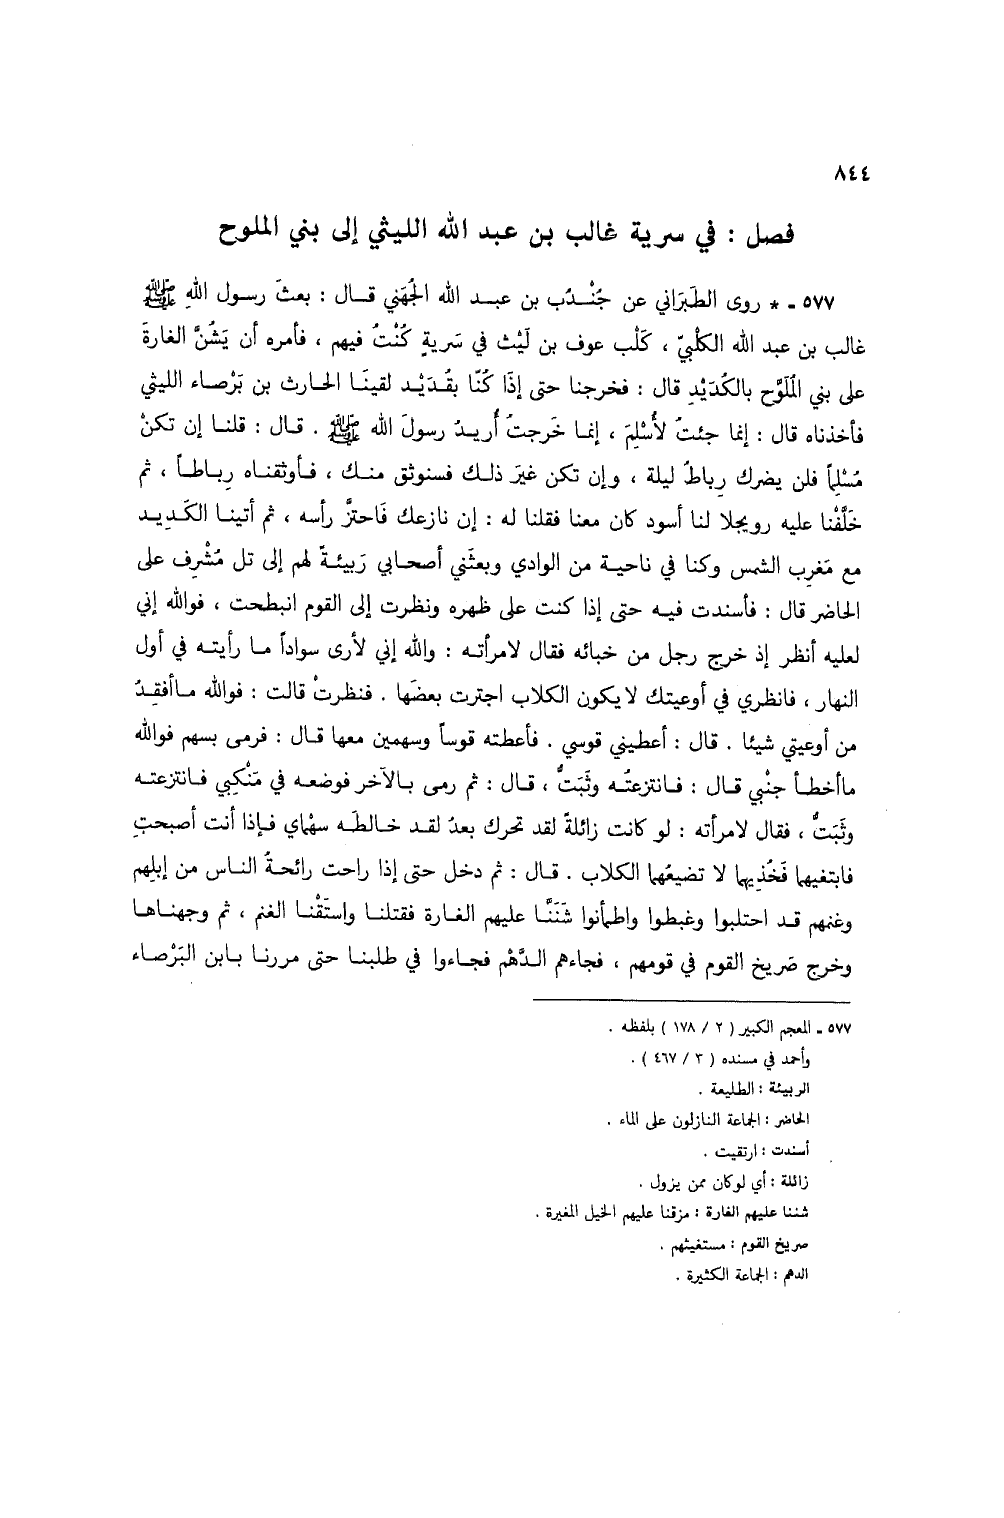 ٨٤٤
فصل : في سرية غالب بن عبد الله الليثي إلى بني الملوح
٥٧٧ ـ * روى الطَبَراني عن جُنْدُب بن عبد الله الجُهَني قال : بعثَ رسول اللهِ ﷺ
غالب بن عبد الله الكلْبيّ ، كَلْب عوف بن لَيْث في سَريةٍ كُنْتُ فيهم ، فأمره أن يَشُنَّ الغارةَ
على بني المُلَوَّح بالكُدَيْدِ قال : فخرجنا حتى إذَا كُنّا بقُدَيْد لقينَا الحارث بن بَرْصاء الليثي
فأخذناه قال : إنما جئتُ لأُسْلِمَ ، إنما خَرجتُ أُريدُ رسولَ الله ﷺ . قال : قلنا إن تكنْ
مُسْلِماً فلن يضرك رباطُ ليلة ، وإن تكن غيرَ ذلك فسنوثق منك ، فأوثقناه رِباطاً ، ثم
خلَّفْنا عليه رويجلا لنا أسود كان معنا فقلنا له : إن نازعك فَاحتزَّ رأسه ، ثم أتينا الكَديد
مع مَغرِب الشمس وكنا في ناحية من الوادي وبعثَني أصحابي رَبيئةً لهم إلى تل مُشْرِف على
الحاضر قال : فأسندت فيه حتى إذا كنت على ظهره ونظرت إلى القوم انبطحت ، فوالله إني
لعليه أنظر إذ خرج رجل من خبائه فقال لامرأته : والله إني لأرى سواداً ما رأيته في أول
النهار ، فانظري في أوعيتك لا يكون الكلاب اجترت بعضَها . فنظرتْ قالت : فوالله ماأفقِدُ
من أوعيتي شيئا . قال : أعطيني قوسي . فأعطته قوساً وسهمين معها قال : فرمى بسهم فوالله
ماأخطأ جنْبي قال : فانتزعتُه وثَبَتُّ ، قال : ثم رمى بالآخر فوضعه في مَنْكِبي فانتزعته
وثَبَتُّ ، فقال لامرأته : لو كانت زائلةً لقد تحرك بعدُ لقد خالطَه سهْماي فإذا أنت أصبحتِ
فابتغيهما فَخُذِيها لا تضيعُهما الكلاب . قال : ثم دخل حتى إذا راحت رائحةُ الناس من إبلِهم
وغنمهم قد احتلبوا وغبطوا واطمأنوا شَنَنَّا عليهم الغارة فقتلنا واستَقْنا الغنم ، ثم وجهناها
وخرج صَريخ القوم في قومهم ، فجاءهم الدَّهْم فجاءوا في طلبنا حتى مررنا بابن البَرْصاء
٥٧٧ ـ المعجم الكبير ( ٢ / ١٧٨ ) بلفظه .
وأحمد في مسنده ( ٣ / ٤٦٧ ) .
الربيئة : الطليعة .
الحاضر : الجماعة النازلون على الماء .
أسندت : ارتقيت .
زائلة : أي لوكان ممن يزول .
شننا عليهم الغارة : مزقنا عليهم الخيل المغيرة .
صريخ القوم : مستغيثهم .
الدهم : الجماعة الكثيرة .